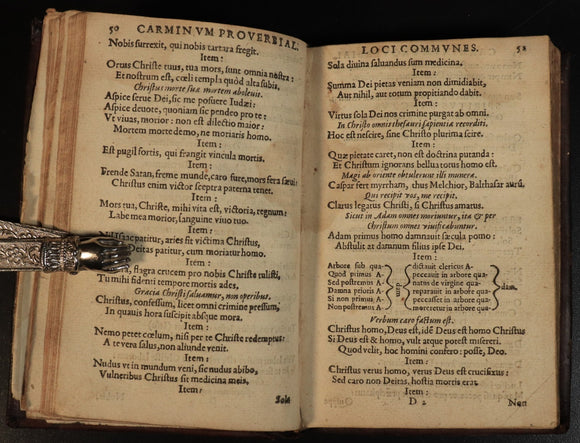 50 CARMINVM PROVERBIAL.
Nobis surrexit, qui nobis tartara fregit.
Item :
Ortus Christe tuus, tua mors, sunt omnia nostra :
Et nostrum est, cœli templa quòd alta subis,
Christus morte sua mortem aboleuit.
Aspice serue Dei, sic me posuere Iudæi :
Aspice deuote, quoniam sic pendeo pro te :
Vt viuas, morior : non est dilectio maior :
Mortem morte demo, ne moriaris homo.
Item :
Est pugil fortis, qui frangit vincula mortis.
Item :
Frende Satan, freme munde, caro fure, mors fera sæui :
Christus enim victor sceptra paterna tenet.
Item :
Mors tua, Christe, mihi vita est, victoria, regnum :
Labe mea morior, sanguine viuo tuo.
Item :
patitur, aries fit victima Christus,
Deitas patitur, cum moriatur homo.
Item :
flagra crucem pro nobis Christe tulisti,
Tu mihi fidenti tempore mortis ades.
Gratia Christi saluamur, non operibus.
Christus, confessum, licet omni crimine pressum,
In quauis hora suscipit absque mora.
Item :
Nemo petet cœlum, nisi per te Christe redemptus :
A te vera salus, non aliunde venit.
Item :
Nudus vt in mundum veni, sic nudus abibo,
Vulneribus Christus fit medicina meis.
Item :
Sola
LOCI COMMVNES. 51
Sola diuina saluandus sum medicina.
Item :
Summa Dei pietas veniam non dimidiabit,
Aut nihil, aut totum propitiando dabit.
Item :
Virtus sola Dei nos crimine purgat ab omni.
In Christo omnis thesauri sapientiæ reconditi.
Hoc est nescire, sine Christo plurima scire.
Item :
Quæ pietate caret, non est doctrina putanda :
Et Christum ignorans bellua totus homo est.
Magi ab oriente obtulerunt illi munera.
Caspar fert myrrham, thus Melchior, Balthasar aurũ.
Qui recipit vos, me recipit.
Clarus legatus Christi, si Christus amatus.
Sicut in Adam omnes moriuntur, ita & per
Christum omnes viuificabuntur.
Adam primus homo damnauit sæcula pomo :
Abstulit at damnum filius ipse Dei.
Item :
Arbore sub qua- dictauit clericus A-
Quod primus A- peccauit in arbore qua-
Sed postremus A- dum natus de virgine qua- dam.
Damna prioris A- reparauit in arbore qua-
Si non primus A- peccasset in arbore qua-
Non postremus A- moreretur in arbore qua-
Verbum caro factum est.
Christus homo, Deus est, idẽ Deus est homo Christus
Si Deus est & homo, vult atque potest misereri.
Quod velit, hoc homini confero : posse, Deo.
Item :
Christus verus homo, verus Deus est crucifixus :
Sed caro non Deitas, hostia mortis erat.
Item :
D 2 Non